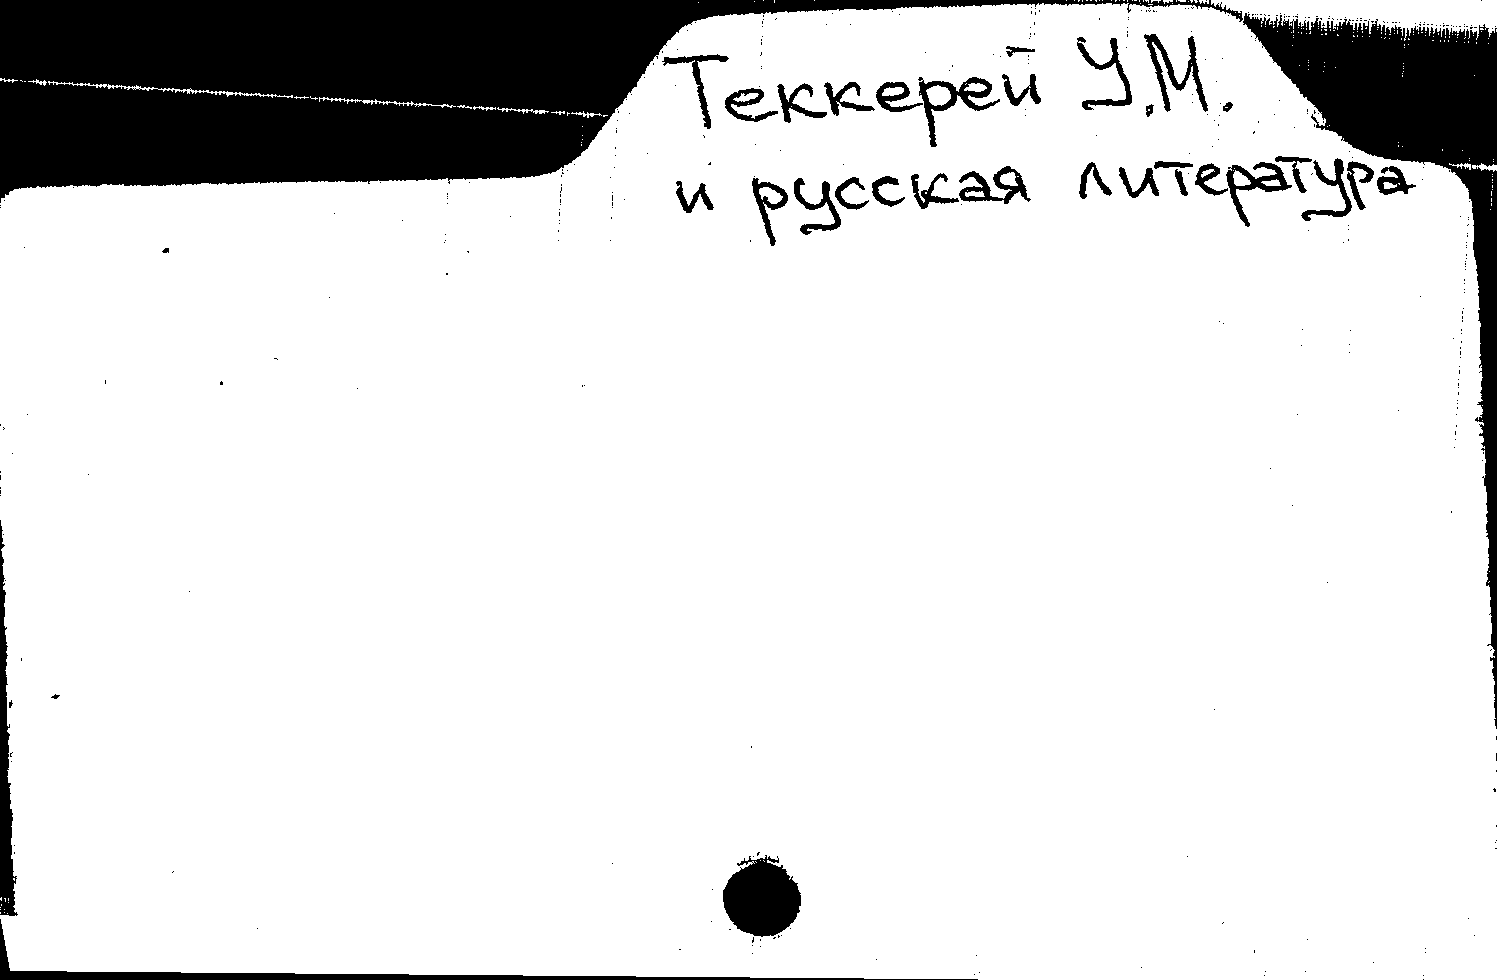 Теккерей У.М.
и русская литература